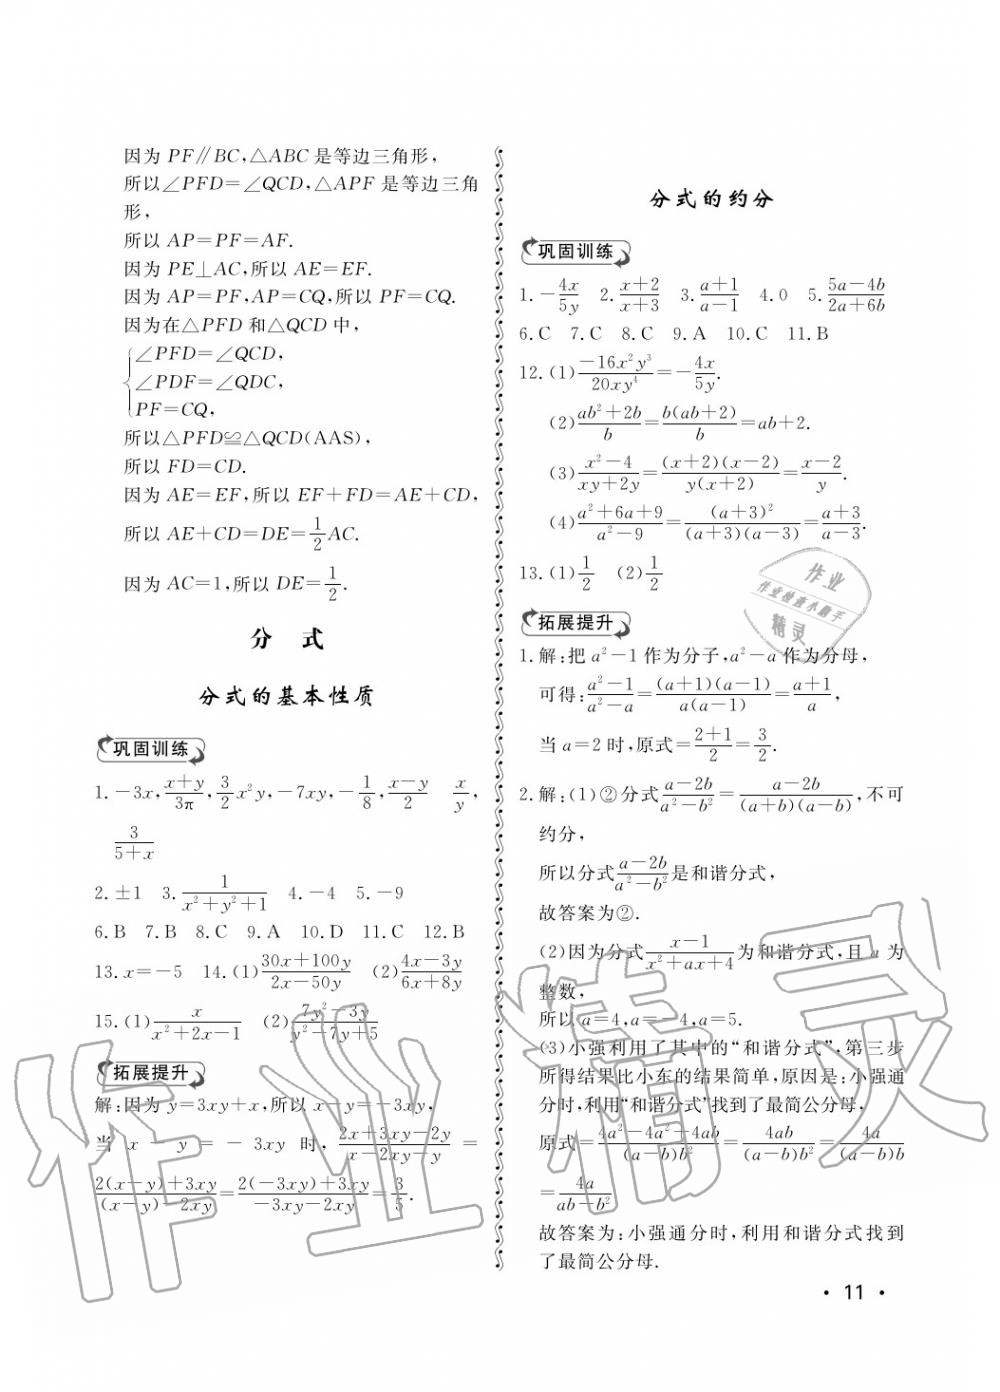 因为 PF∥BC,△ABC 是等边三角形,
所以∠PFD=∠QCD,△APF 是等边三角
形,
所以 AP=PF=AF.
因为 PE⊥AC,所以 AE=EF.
因为 AP=PF,AP=CQ,所以 PF=CQ.
因为在△PFD 和△QCD 中,
{∠PFD=∠QCD,
∠PDF=∠QDC,
PF=CQ,
所以△PFD≌△QCD(AAS),
所以 FD=CD.
因为 AE=EF,所以 EF+FD=AE+CD,
所以 AE+CD=DE=1/2 AC.
因为 AC=1,所以 DE=1/2.
分 式
分式的基本性质
巩固训练
1. -3x, (x+y)/3π, 3/2 x²y, -7xy, -1/8, (x-y)/2  x/y,
3/(5+x)
2. ±1  3. 1/(x²+y²+1)  4. -4  5. -9
6. B  7. B  8. C  9. A  10. D  11. C  12. B
13. x=-5  14. (1) (30x+100y)/(2x-50y)  (2) (4x-3y)/(6x+8y)
15. (1) x/(x²+2x-1)  (2) (7y²-3y)/(y²-7y+5)
拓展提升
解:因为 y=3xy+x,所以 x-y=-3xy,
当 x-y=-3xy 时, (2x+3xy-2y)/(x-2xy-y) =
(2(x-y)+3xy)/((x-y)-2xy) = (2(-3xy)+3xy)/(-3xy-2xy) = 3/5.
分式的约分
巩固训练
1. -4x/5y  2. (x+2)/(x+3)  3. (a+1)/(a-1)  4. 0  5. (5a-4b)/(2a+6b)
6. C  7. C  8. C  9. A  10. C  11. B
12. (1) (-16x²y³)/(20xy⁴) = -4x/5y.
(2) (ab²+2b)/b = b(ab+2)/b = ab+2.
(3) (x²-4)/(xy+2y) = (x+2)(x-2)/(y(x+2)) = (x-2)/y.
(4) (a²+6a+9)/(a²-9) = (a+3)²/((a+3)(a-3)) = (a+3)/(a-3).
13. (1) 1/2  (2) 1/2
拓展提升
1. 解:把 a²-1 作为分子,a²-a 作为分母,
可得: (a²-1)/(a²-a) = (a+1)(a-1)/(a(a-1)) = (a+1)/a,
当 a=2 时,原式=(2+1)/2=3/2.
2. 解:(1)②分式 (a-2b)/(a²-b²) = (a-2b)/((a+b)(a-b)),不可
约分,
所以分式 (a-2b)/(a²-b²) 是和谐分式,
故答案为②.
(2)因为分式 (x-1)/(x²+ax+4) 为和谐分式,且 a 为
整数,
所以 a=4,a=-4,a=5.
(3)小强利用了其中的“和谐分式”,第三步
所得结果比小东的结果简单,原因是:小强通
分时,利用“和谐分式”找到了最简公分母,
原式=(4a²-4a²+4ab)/((a-b)b²) = 4ab/((a-b)b²) = 4a/((a-b)b)
=4a/(ab-b²)
故答案为:小强通分时,利用和谐分式找到
了最简公分母.
• 11 •
作业
作业检查小助手
精灵
作业精灵